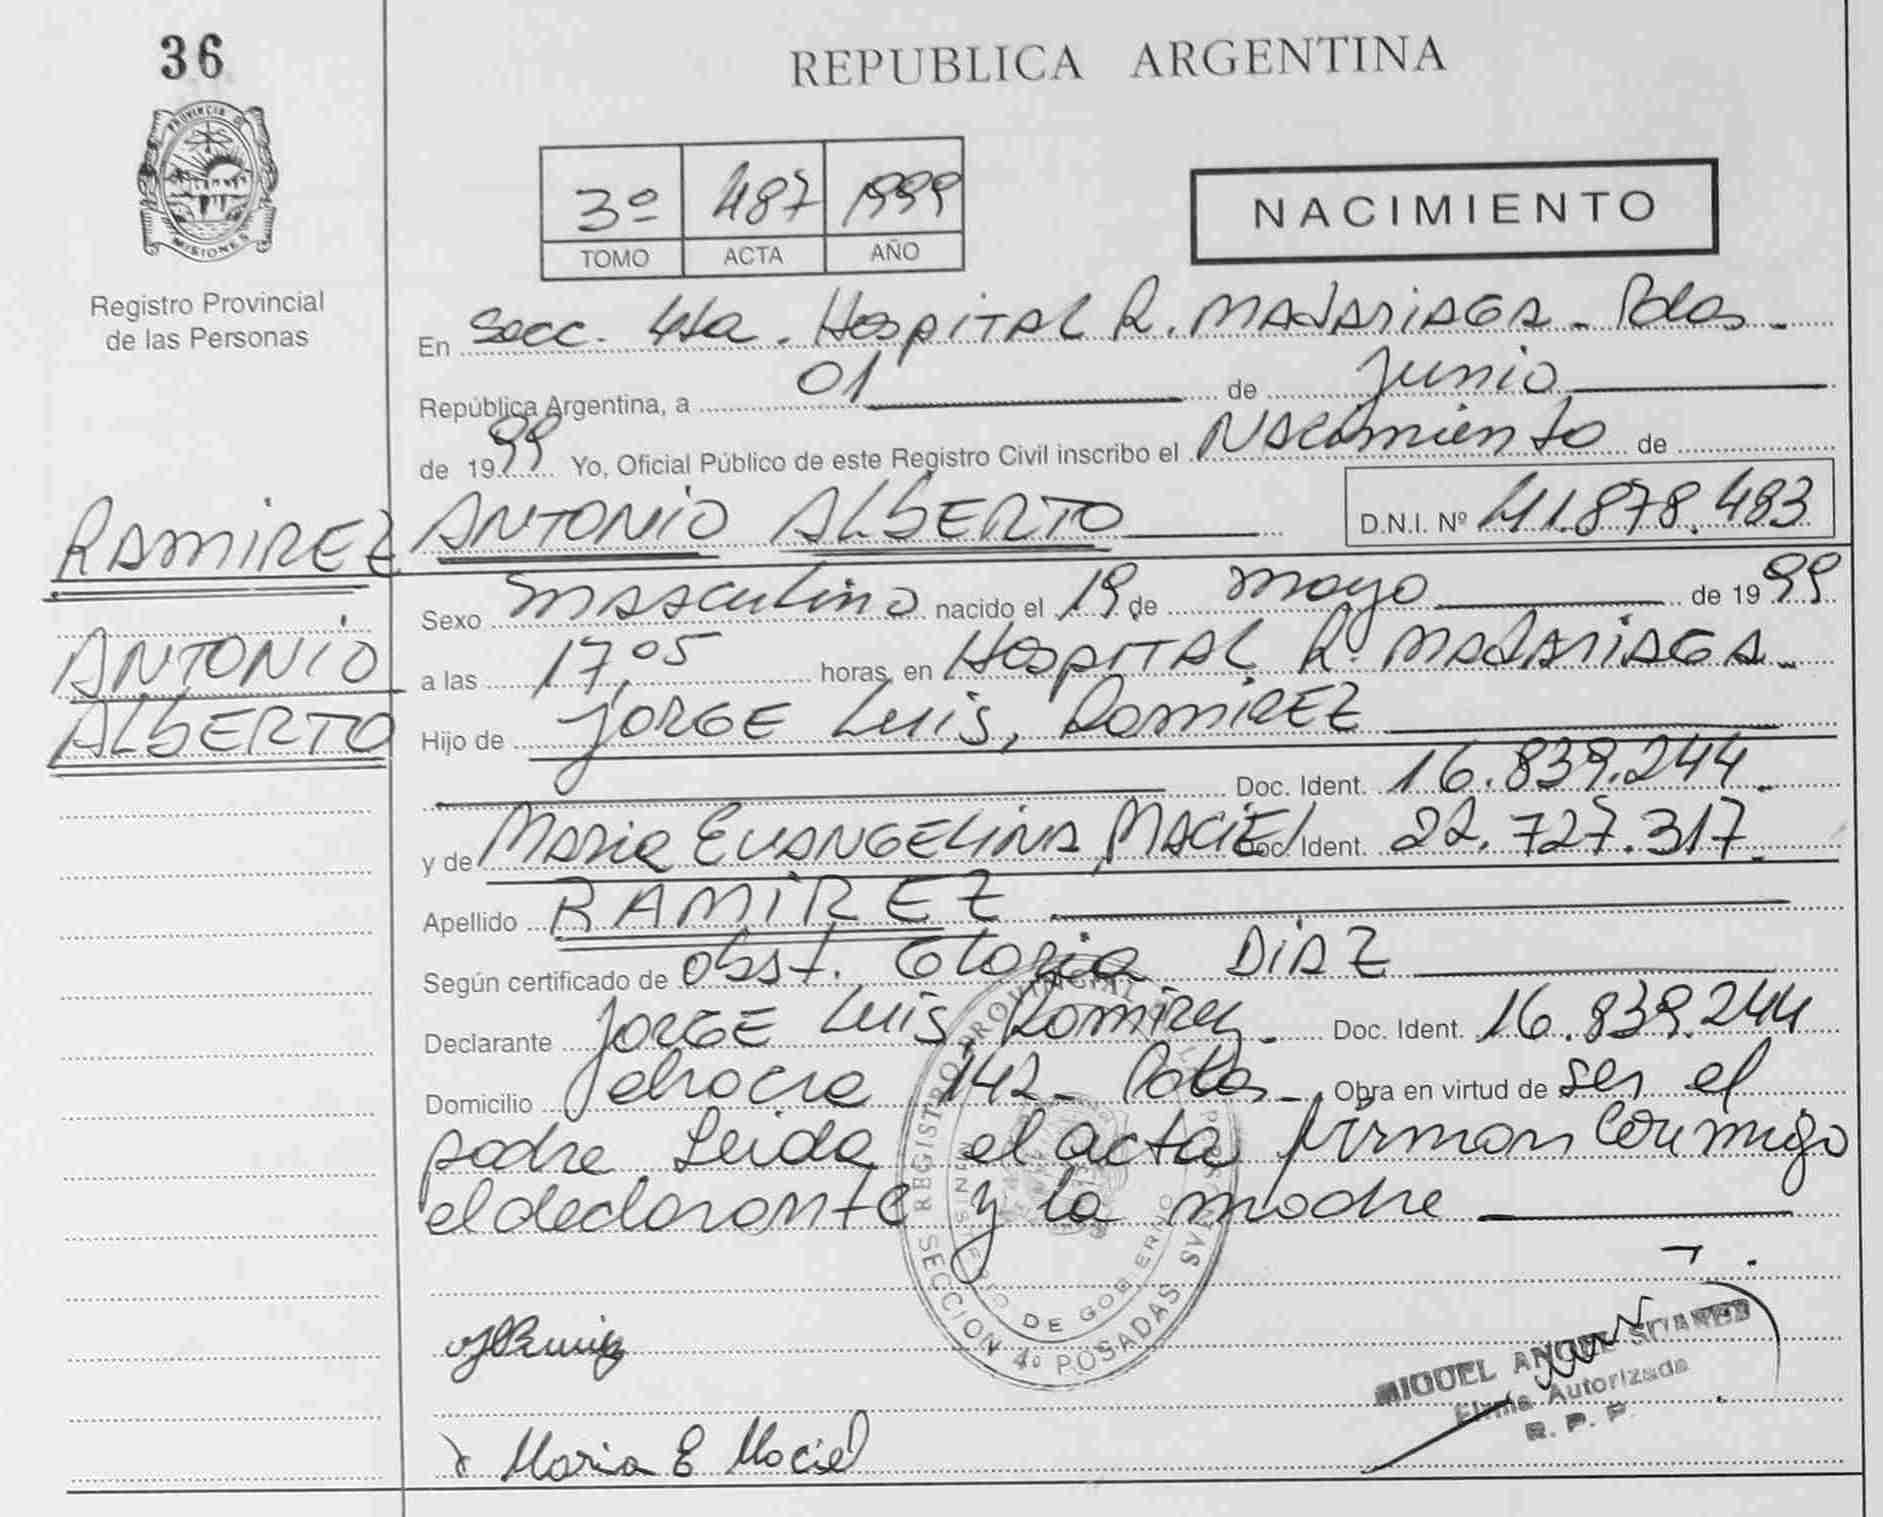 36
REPUBLICA ARGENTINA
PROVINCIA D
MISIONES
Registro Provincial
de las Personas
3º 487 1999
TOMO ACTA AÑO
NACIMIENTO
En Secc. 4ta. Hospital R. Madariaga - Pdas -
República Argentina, a 01 de Junio
de 1999 Yo, Oficial Público de este Registro Civil inscribo el Nacimiento de
RAMIREZ ANTONIO ALBERTO D.N.I. Nº 41.878.483
Sexo masculino nacido el 19 de mayo de 1999
ANTONIO
a las 17,05 horas, en Hospital R. Madariaga -
ALBERTO
Hijo de Jorge Luis, Ramirez
Doc. Ident. 16.839.244
y de Maria Evangelina, Maciel Doc. Ident. 22.727.317
Apellido RAMIREZ
Según certificado de obst. Gloria Diaz
Declarante Jorge Luis, Ramirez - Doc. Ident. 16.839.244
Domicilio 142 - Pdas - Obra en virtud de ser el
padre Leida el acta firman conmigo
el declarante y la madre
REGISTRO PROVINCIAL DE LAS PERSONAS
MINISTERIO DE GOBIERNO
SECCION 4º POSADAS
MIGUEL ANGEL SUAREZ
Firma Autorizada
R. P. P.
Maria E Maciel